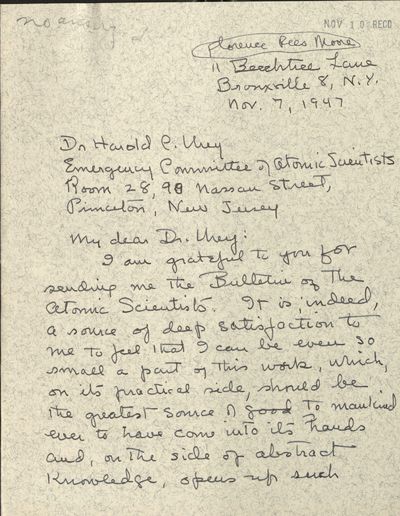 no answer
NOV 10 RECD
Florence Rees Moore
11 Beechtree Lane
Bronxville 8, N.Y.
Nov. 7, 1947
Dr Harold C. Urey
Emergency Committee of Atomic Scientists
Room 28, 90 Nassau Street,
Princeton, New Jersey
My dear Dr. Urey:
I am grateful to you for
sending me the Bulletin of The
Atomic Scientists. It is, indeed,
a source of deep satisfaction to
me to feel that I can be even so
small a part of this work, which,
on its practical side, should be
the greatest source of good to mankind
ever to have come into its hands
and, on the side of abstract
Knowledge, opens up such